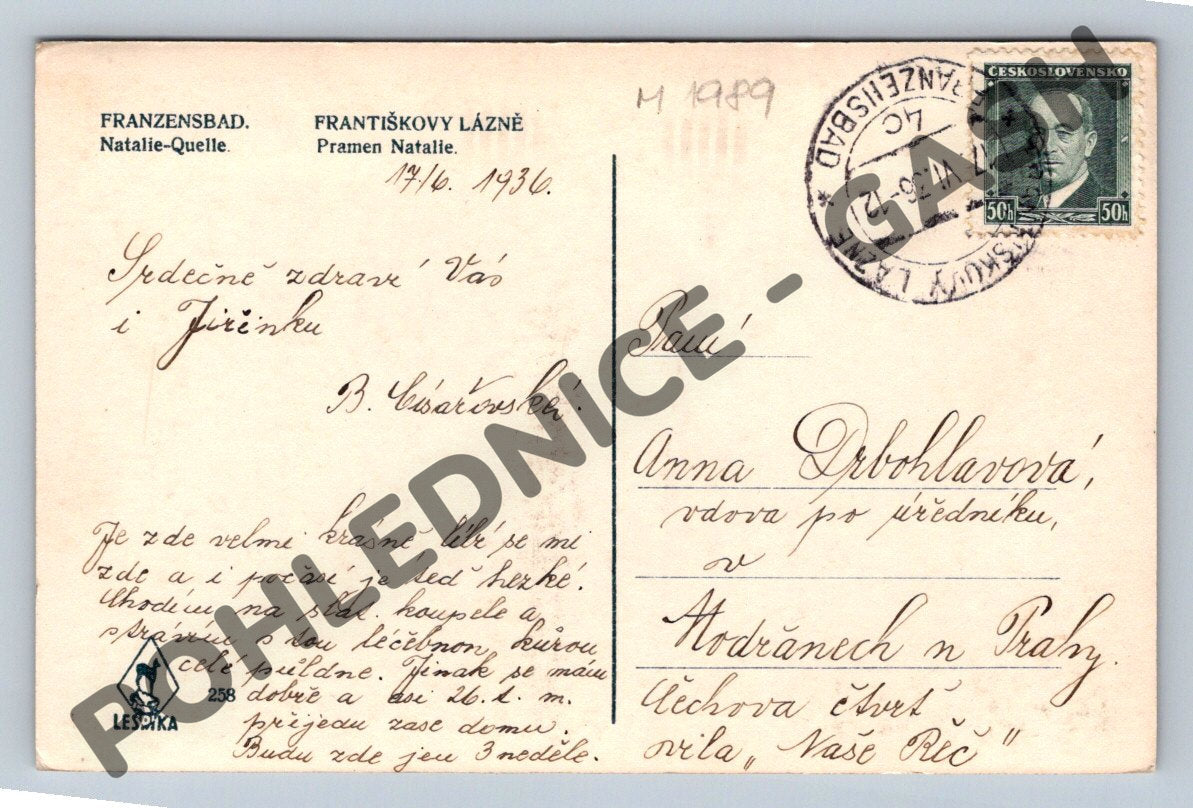 FRANZENSBAD.
Natalie-Quelle.
FRANTIŠKOVY LÁZNĚ
Pramen Natalie.
M 1989
17/6. 1936.
ČESKOSLOVENSKO
50h 50h
FRANZENSBAD
4C
17 VI.36-12
FRANTIŠKOVY LÁZNĚ
Srdečně zdraví Vás
i Jiřinku
B. Císařovská.
Je zde velmi krásně líbí se mi
zde a i počasí je teď hezké.
Chodím na slat. koupele a
strávím s tou léčebnou kůrou
celé půldne. Jinak se mám
dobře a asi 26. t. m.
přijedu zase domu.
Budu zde jen 3 neděle.
LEŠTKA
258
Paní
Anna Drbohlavová,
vdova po úředníku,
v
Modřanech u Prahy.
Čechova čtvrť
vila „Naše Řěč"
POHLEDNICE - GALU